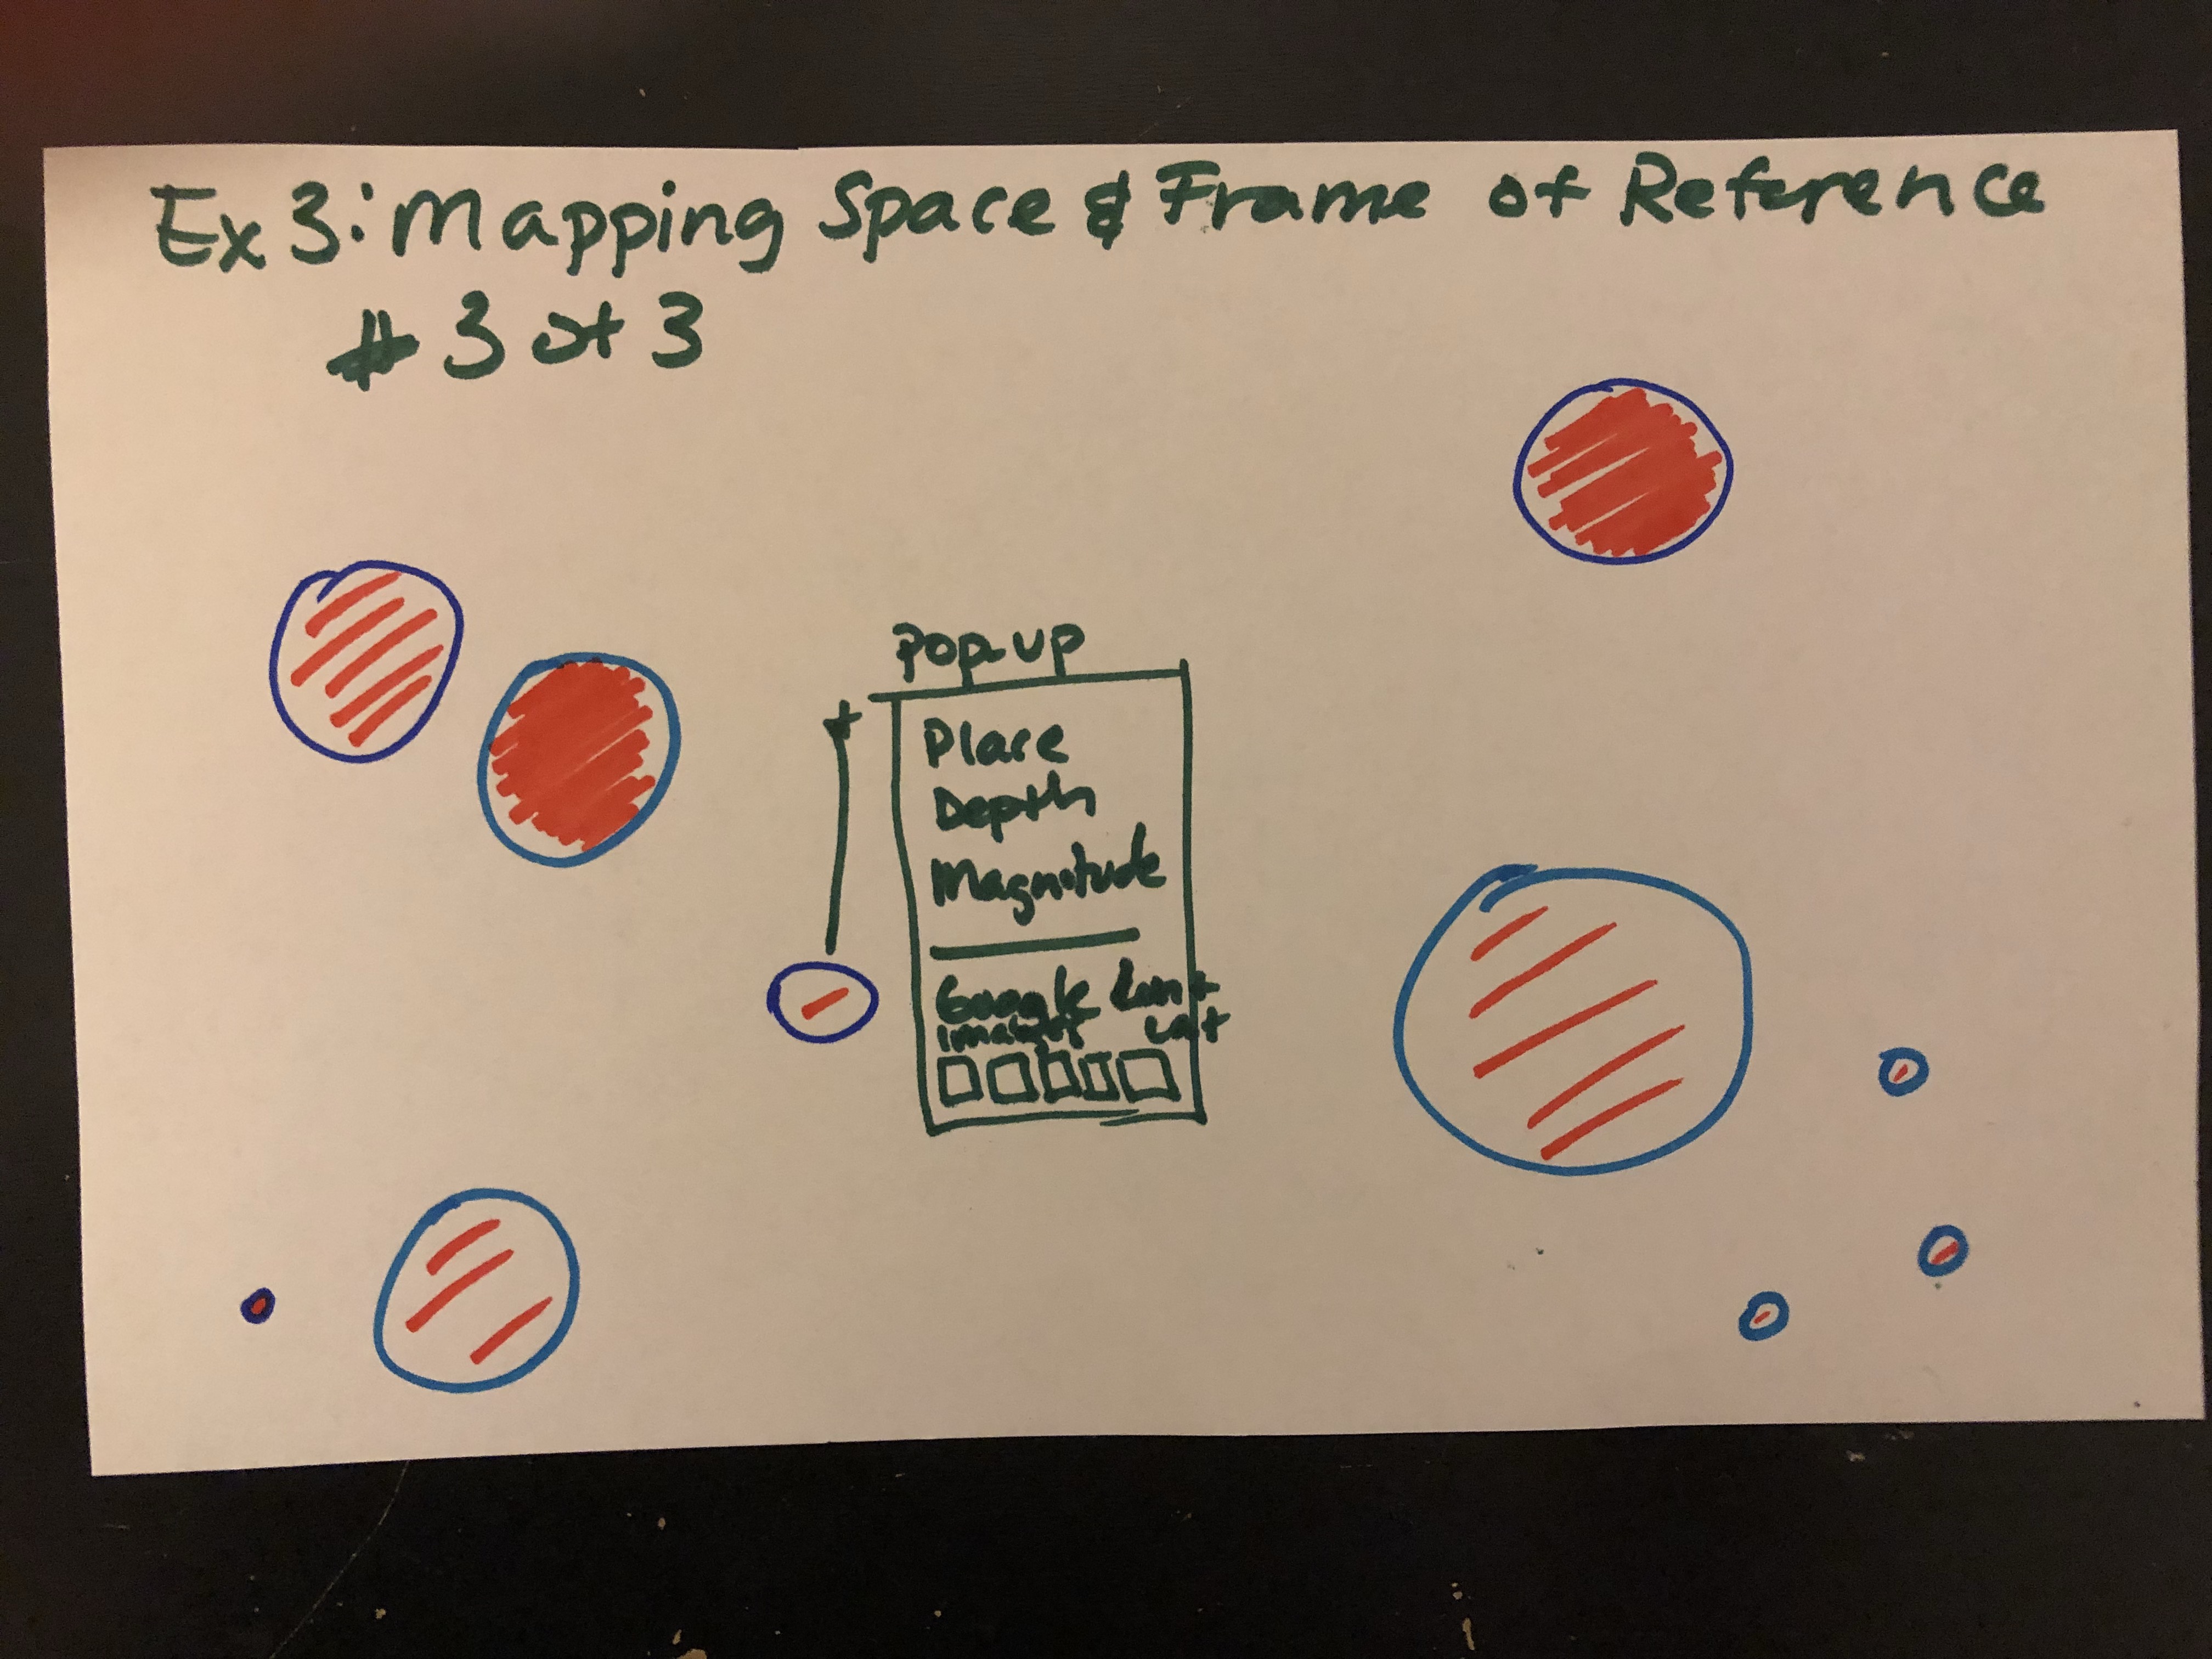 Ex 3: Mapping Space & Frame of Reference
# 3 of 3
POPUP
Place
Depth
Magnitude
Google
Images
Lat